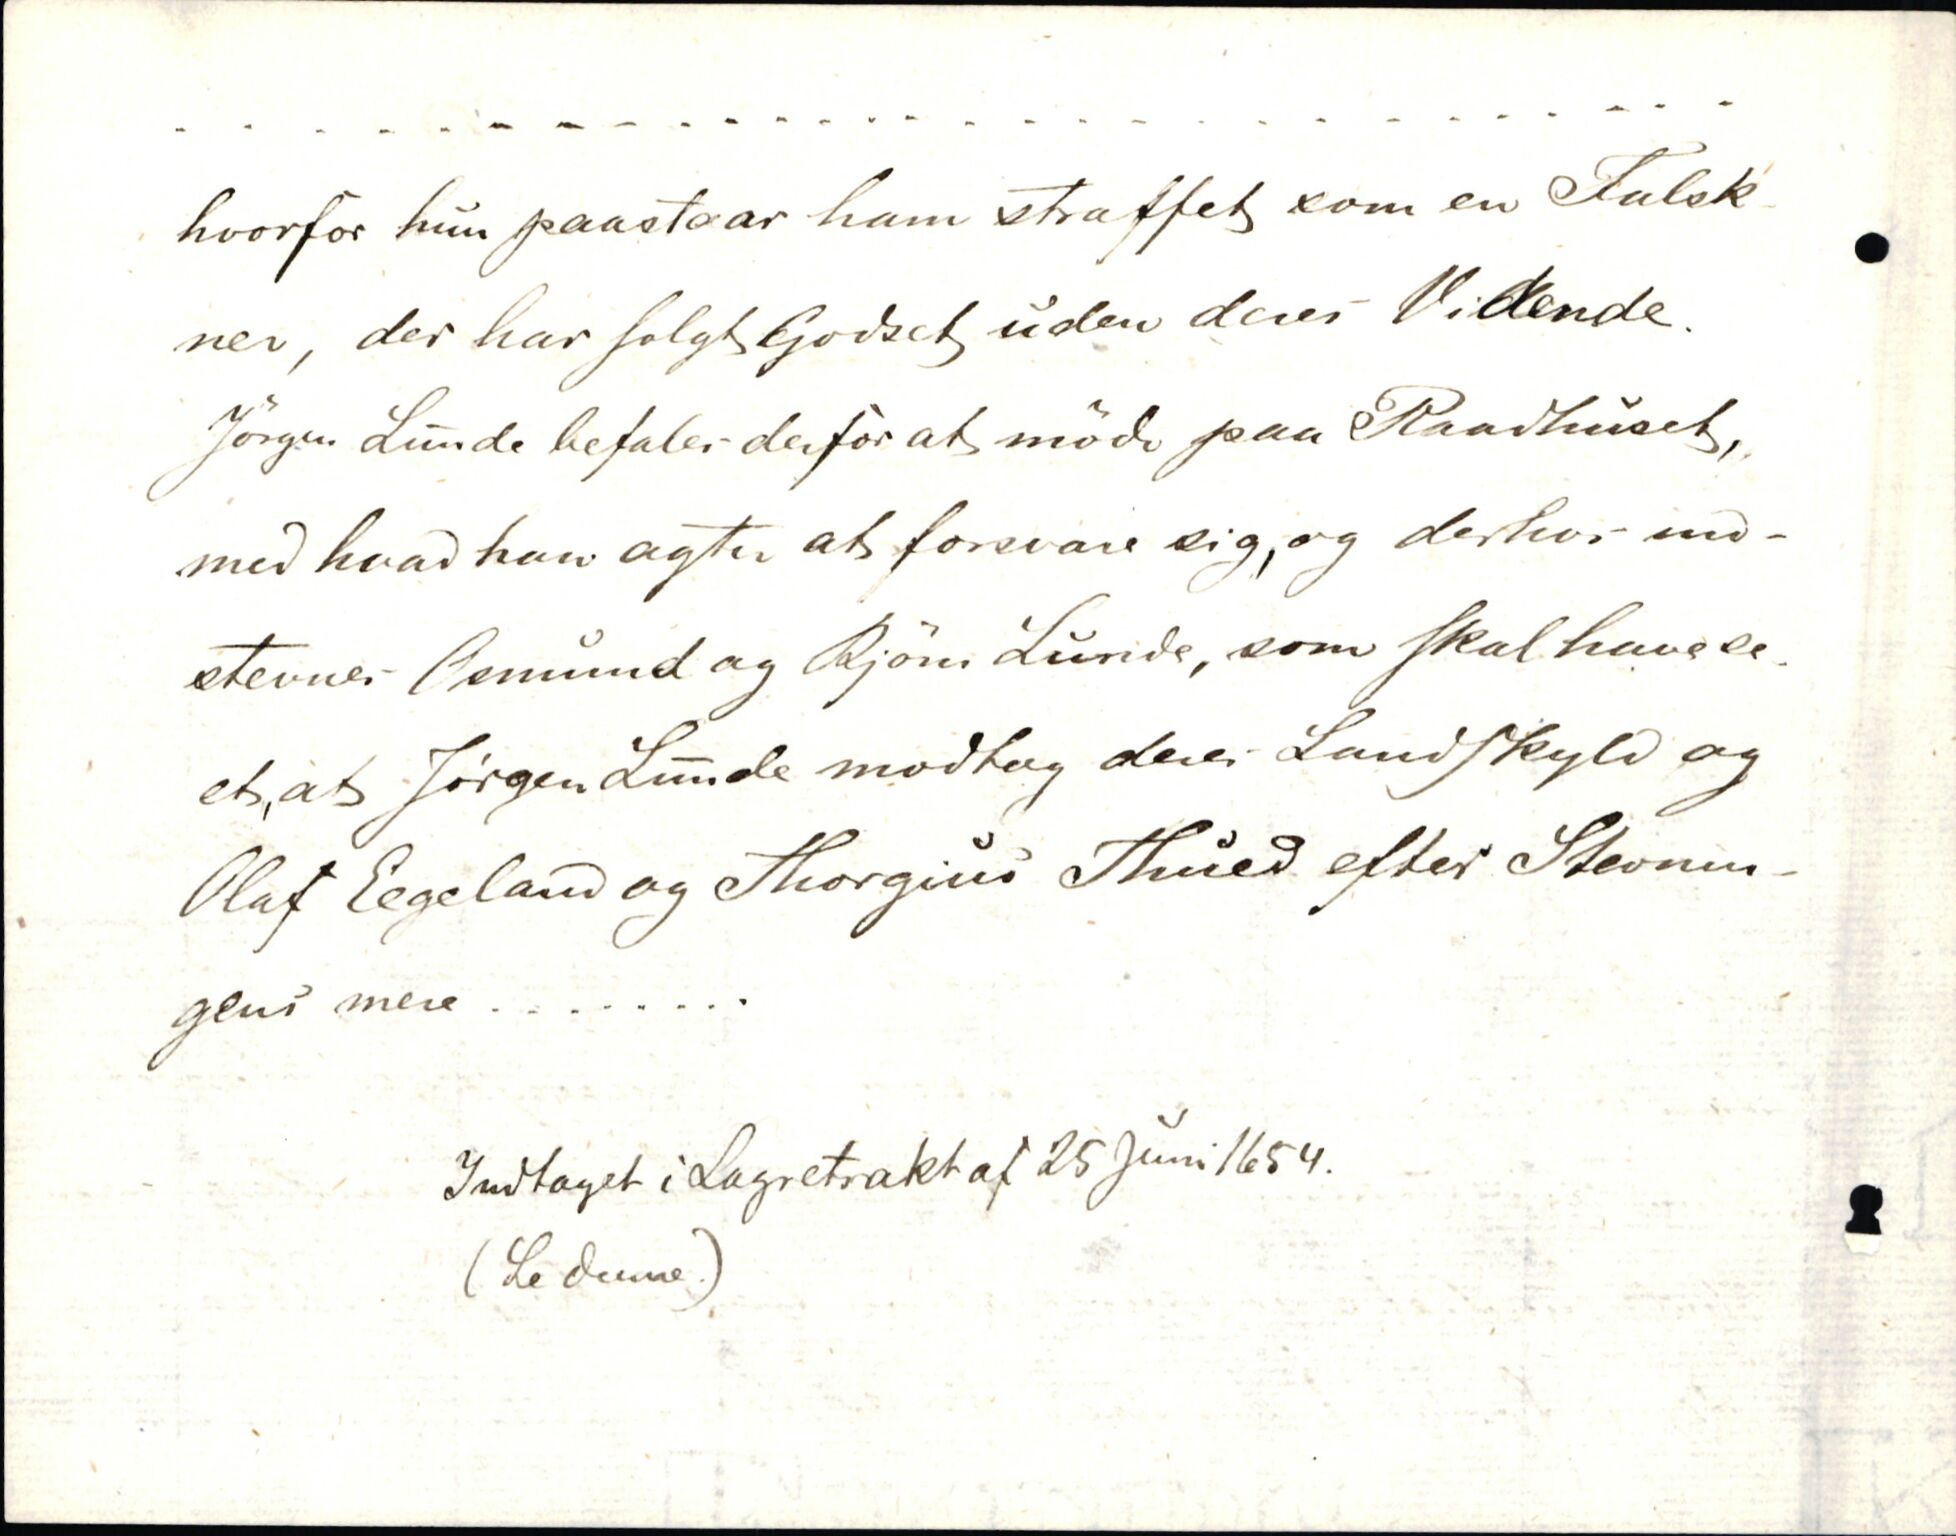 . . . . . . . . . . . . . . . . . . . . . . . . . . . . . .
hvorfor hun paastaar ham straffet som en Falsk-
ner, der har solgt Godset uden deres Vidende.
Jörgen Lunde befales derfor at möde paa Raadhuset,
med hvad han agter at forsvare sig, og derhos ind-
stevnes Osmund og Björn Lunde, som skal have se-
et, at Jörgen Lunde modtog deres Landskyld og
Olaf Eegeland og Thorgius Thued efter Stevnin-
gens mere . . . . . . . . .
Indtaget i Lagretrakt af 25 Juni 1654.
(Se denne.)